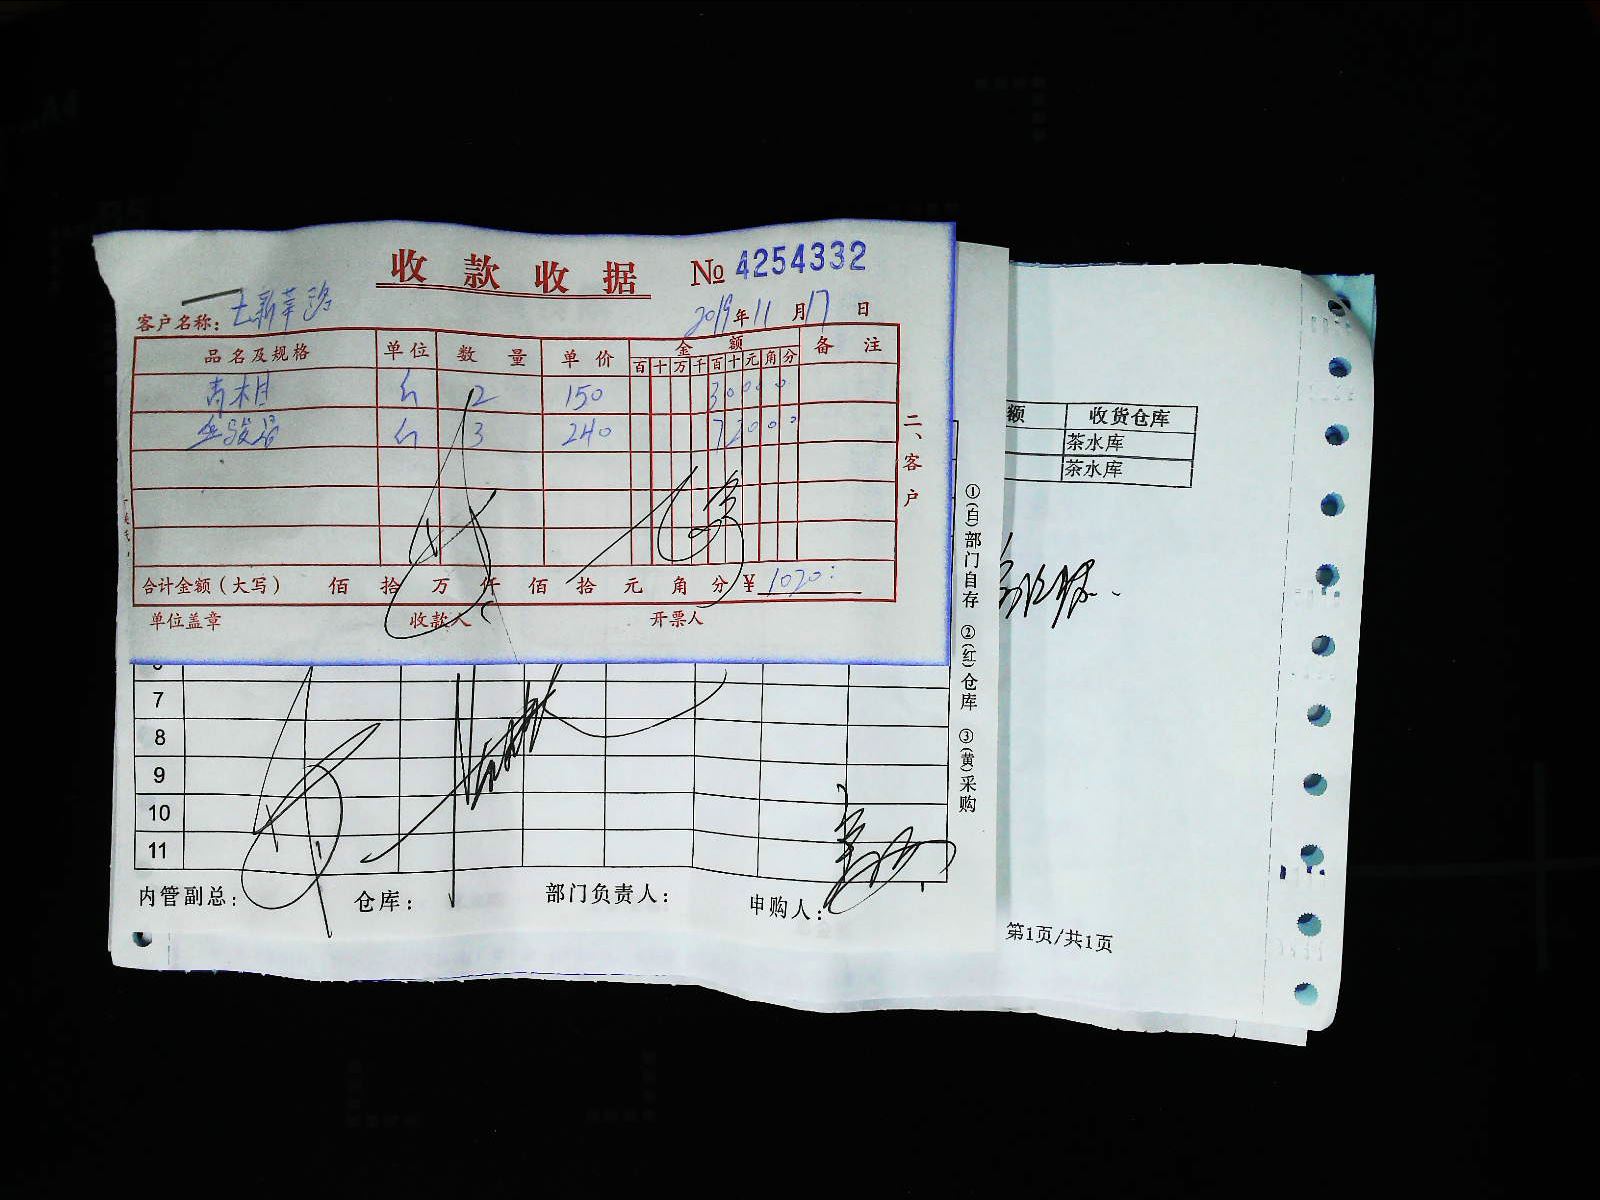 收款收据 № 4254332
客户名称：
2019年11月17日
品名及规格 单位 数量 单价 金额 备注
百 十 万 千 百 十 元 角 分
2 150 30000
3 240 72000
合计金额（大写） 佰 拾 万 仟 佰 拾 元 角 分 ¥ 1020
单位盖章 收款人 开票人
二、客户
额 收货仓库
茶水库
茶水库
7
8
9
10
11
内管副总： 仓库： 部门负责人： 申购人：
①(白)部门自存 ②(红)仓库 ③(黄)采购
第1页/共1页